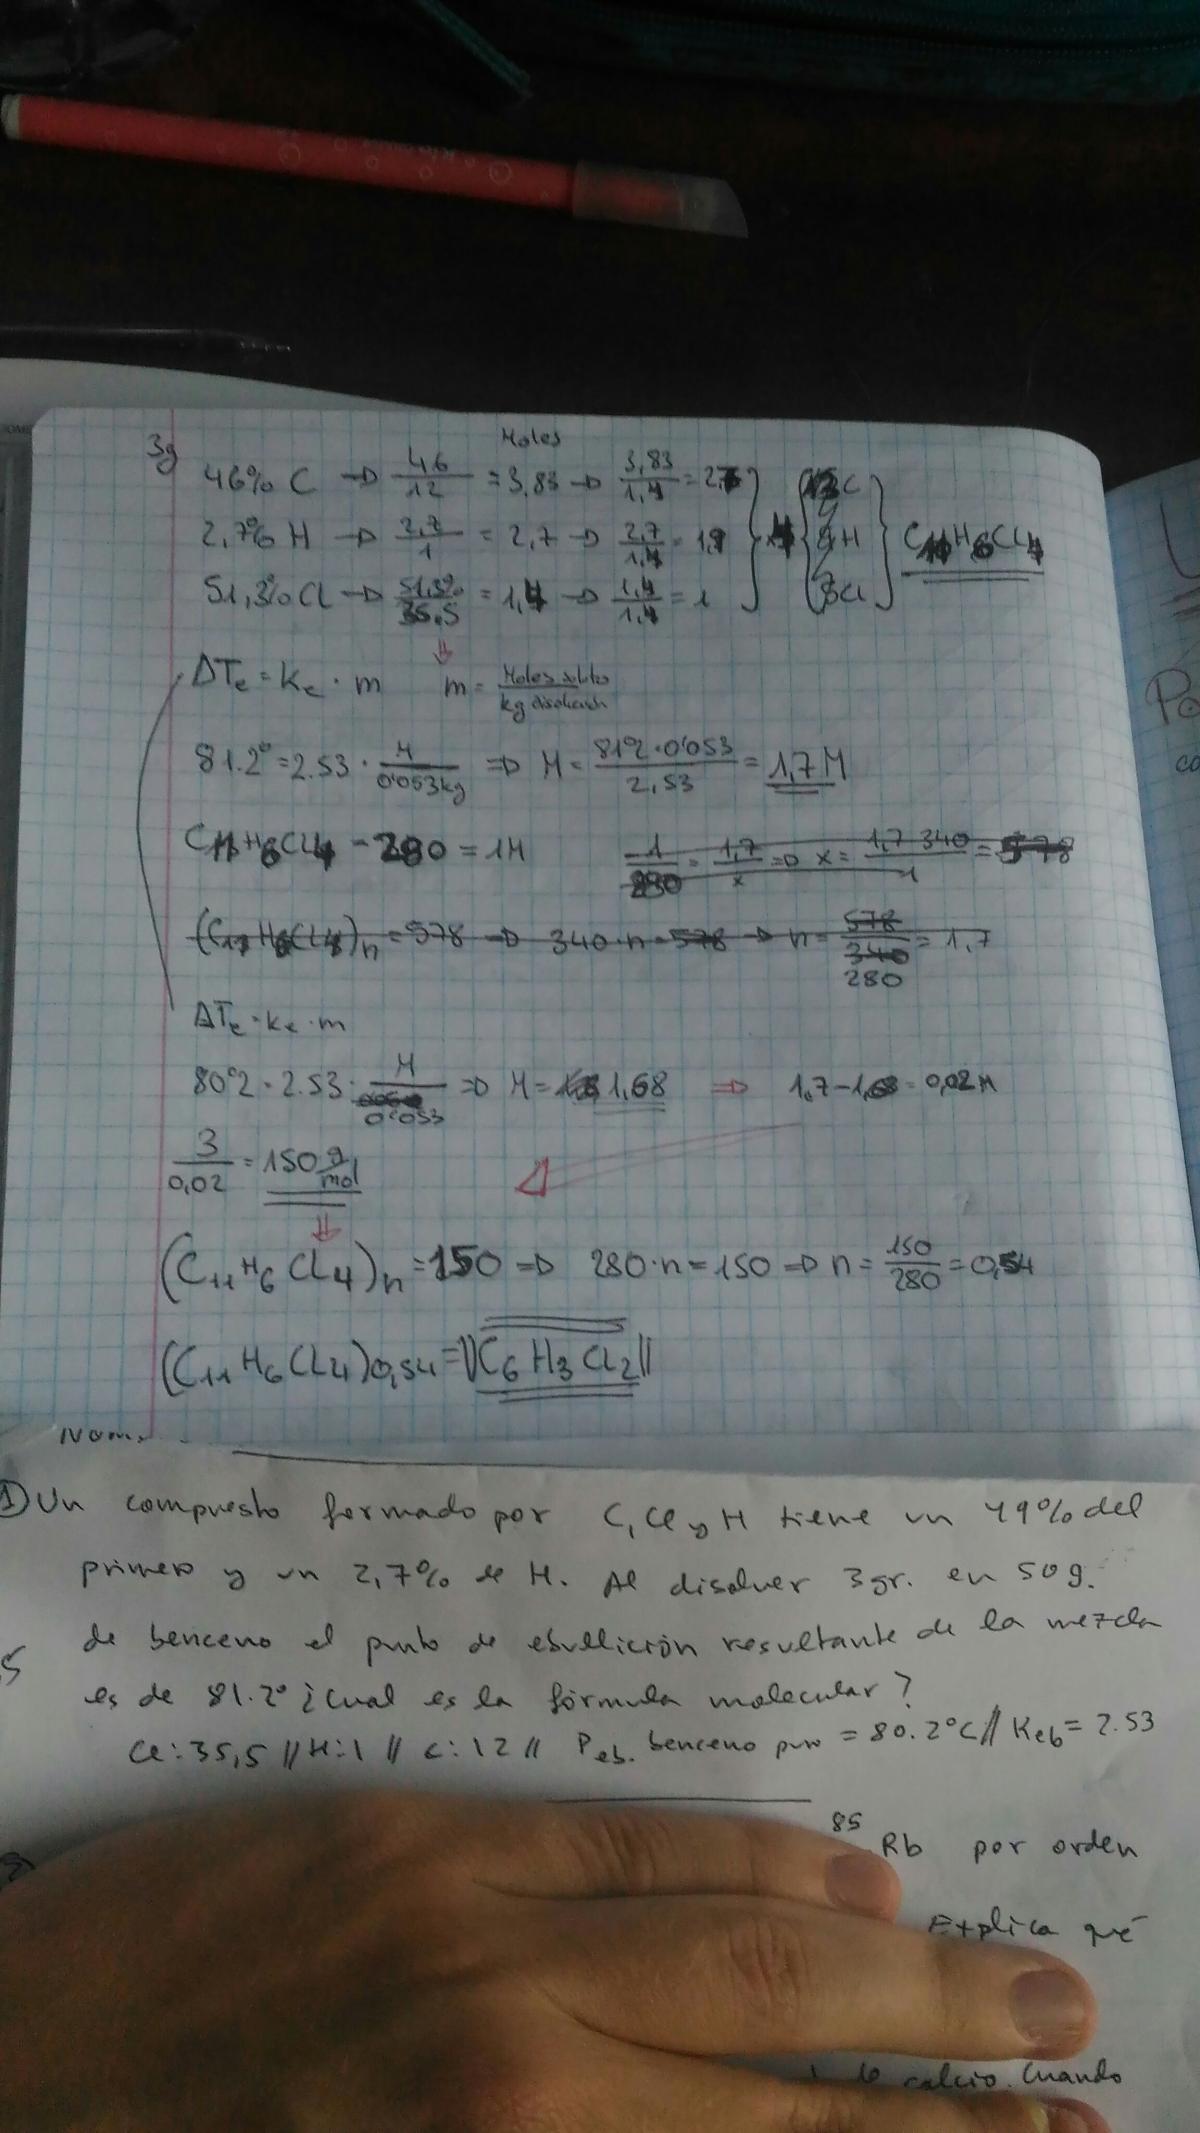 Moles
3g
46% C → 46/12 = 3,83 → 3,83/1,4 = 2,7
2,7% H → 2,7/1 = 2,7 → 2,7/1,4 = 1,9 x4 C11H6Cl4
51,3% Cl → 51,3%/35.5 = 1,4 → 1,4/1,4 = 1
ΔTe = Ke · m m = Moles soluto/kg disolución
81.2º = 2.53 · M/0'053kg ⇒ M = 81º2·0'053/2,53 = 1,7 M
C11H6Cl4 - 280 = 1M 1/280 = 1,7/x ⇒ x = 1,7·340/1 = 578
(C11H6Cl4)n = 578 ⇒ 340·n = 578 → n = 578/340 = 1,7
280
ΔTe = Ke · m
80º2 = 2.53 · M/0'053 ⇒ M = 1,68 ⇒ 1,7-1,68 = 0,02M
3/0,02 = 150 g/mol
(C11H6Cl4)n = 150 ⇒ 280·n = 150 ⇒ n = 150/280 = 0,54
(C11H6Cl4)0,54 = C6H3Cl2
Nom
1) Un compuesto formado por C, Cl y H tiene un 49% del
primero y un 2,7% de H. Al disolver 3gr. en 50g.
de benceno el punto de ebullición resultante de la mezcla
es de 81.2º ¿Cual es la fórmula molecular?
Cl: 35,5 // H: 1 // C: 12 // Peb. benceno puro = 80.2ºC // Keb = 2.53
85Rb por orden
Explica qué
calcio. Cuando